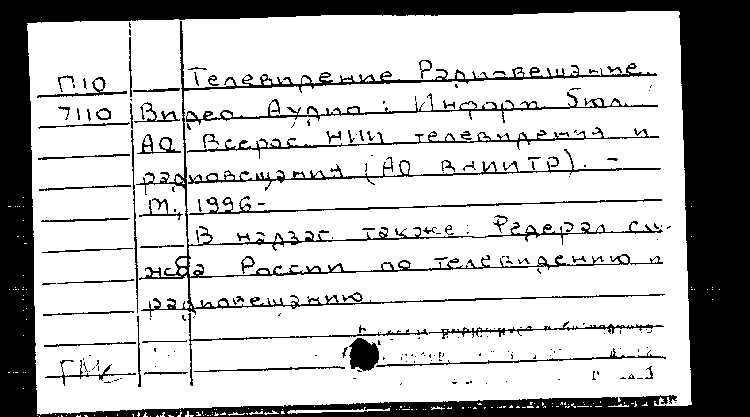 П10 Телевидение. Радиовещание.
7110 Видео. Аудио : Информ бюл.
АО Всерос. НИИ телевидения и
радиовещания (АО ВНИИТР). -
М., 1996-
В надзаг также: Федерал слу-
жба России по телевидению и
радиовещанию.